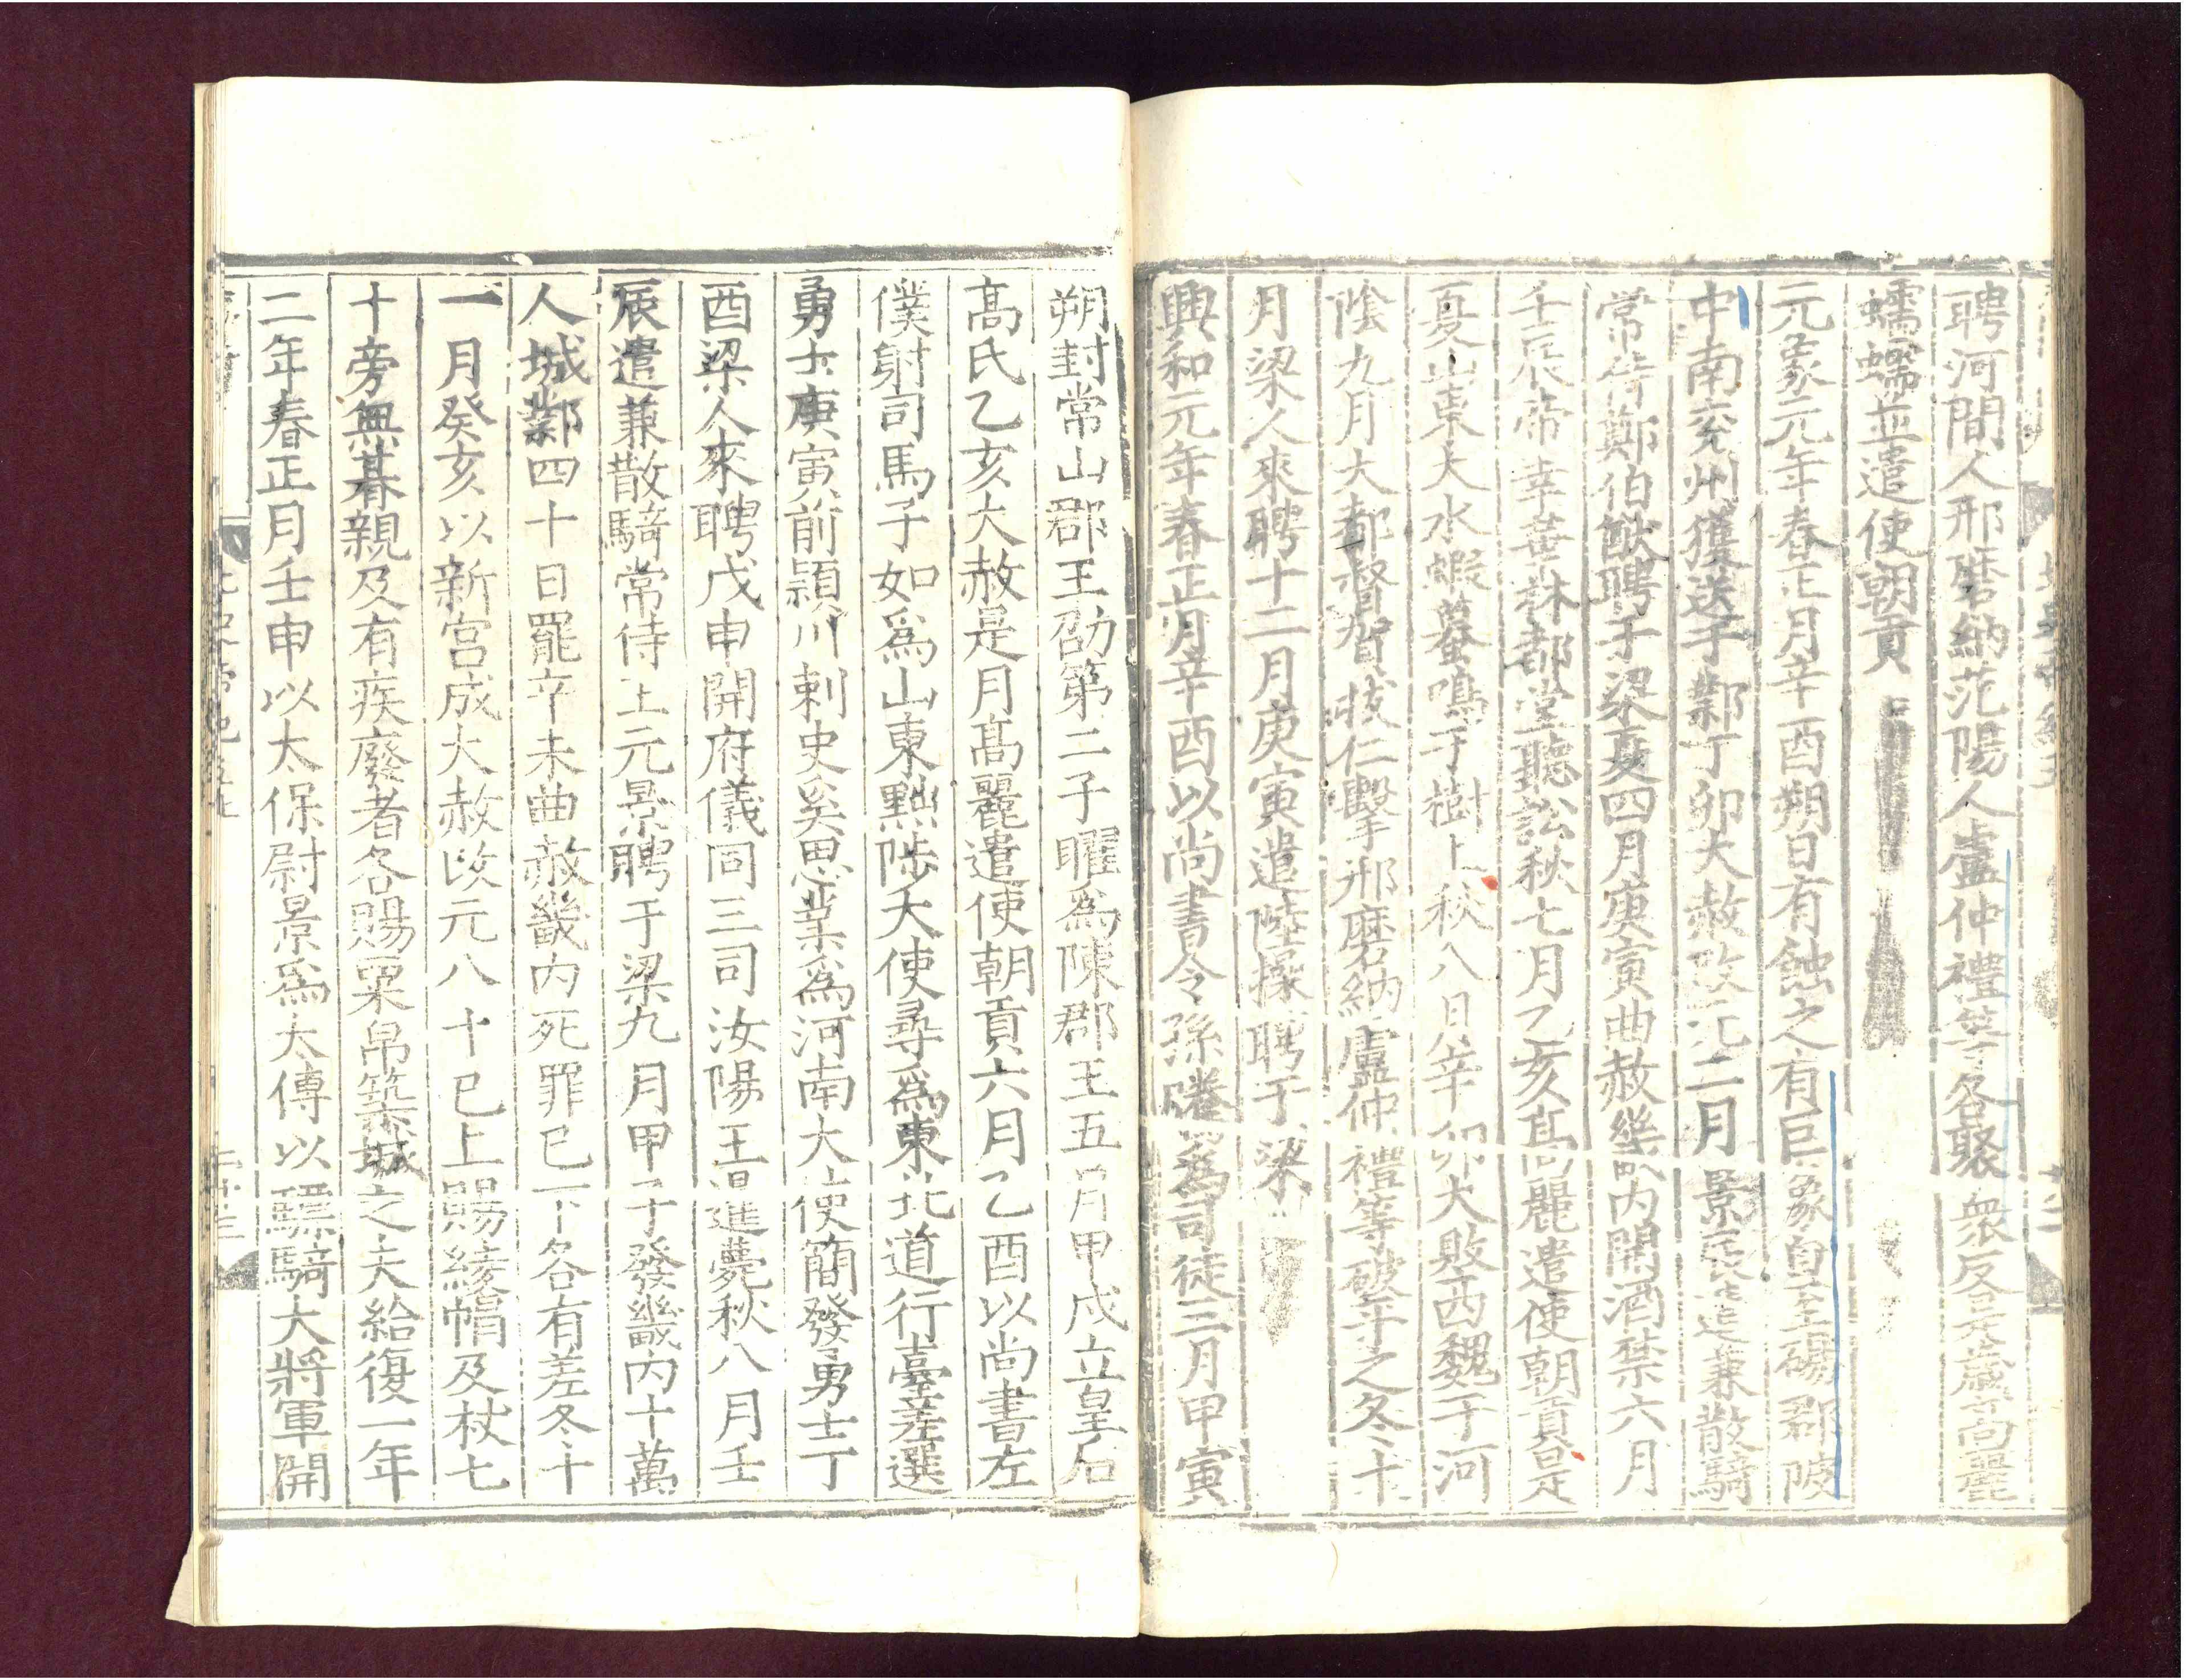 聘河間人邢磨納范陽人盧仲禮等各聚衆反是歲高麗
蠕蠕並遣使朝貢
元象元年春正月辛酉朔日有蝕之有巨象自至碭郡陂
中南兖州獲送于鄴丁卯大赦改元二月景辰遣兼散騎
常侍鄭伯猷聘于梁夏四月庚寅曲赦畿內開酒禁六月
壬辰帝幸華林都堂聽訟秋七月乙亥高麗遣使朝貢是
夏山東大水蝦蟇鳴于樹上秋八月辛卯大敗西魏于河
陰九月大都督賀拔仁擊邢磨納盧仲禮等破平之冬十
月梁人來聘十二月庚寅遣陸操聘于梁
興和元年春正月辛酉以尚書令孫騰爲司徒三月甲寅
朔封常山郡王劭第二子曜爲陳郡王五月甲戌立皇后
髙氏乙亥大赦是月髙麗遣使朝貢六月乙酉以尚書左
僕射司馬子如爲山東黜陟大使尋爲東北道行臺差選
勇士庚寅前潁川刺史奚思業爲河南大使簡發勇士丁
酉梁人來聘戊申開府儀同三司汝陽王暹薨秋八月壬
辰遣兼散騎常侍王元景聘于梁九月甲子發畿內十萬
人城鄴四十日罷辛未曲赦畿內死罪已下各有差冬十
一月癸亥以新宮成大赦改元八十已上賜綾帽及杖七
十旁無朞親及有疾廢者各賜粟帛築城之夫給復一年
二年春正月壬申以太保尉景爲太傅以驃騎大將軍開